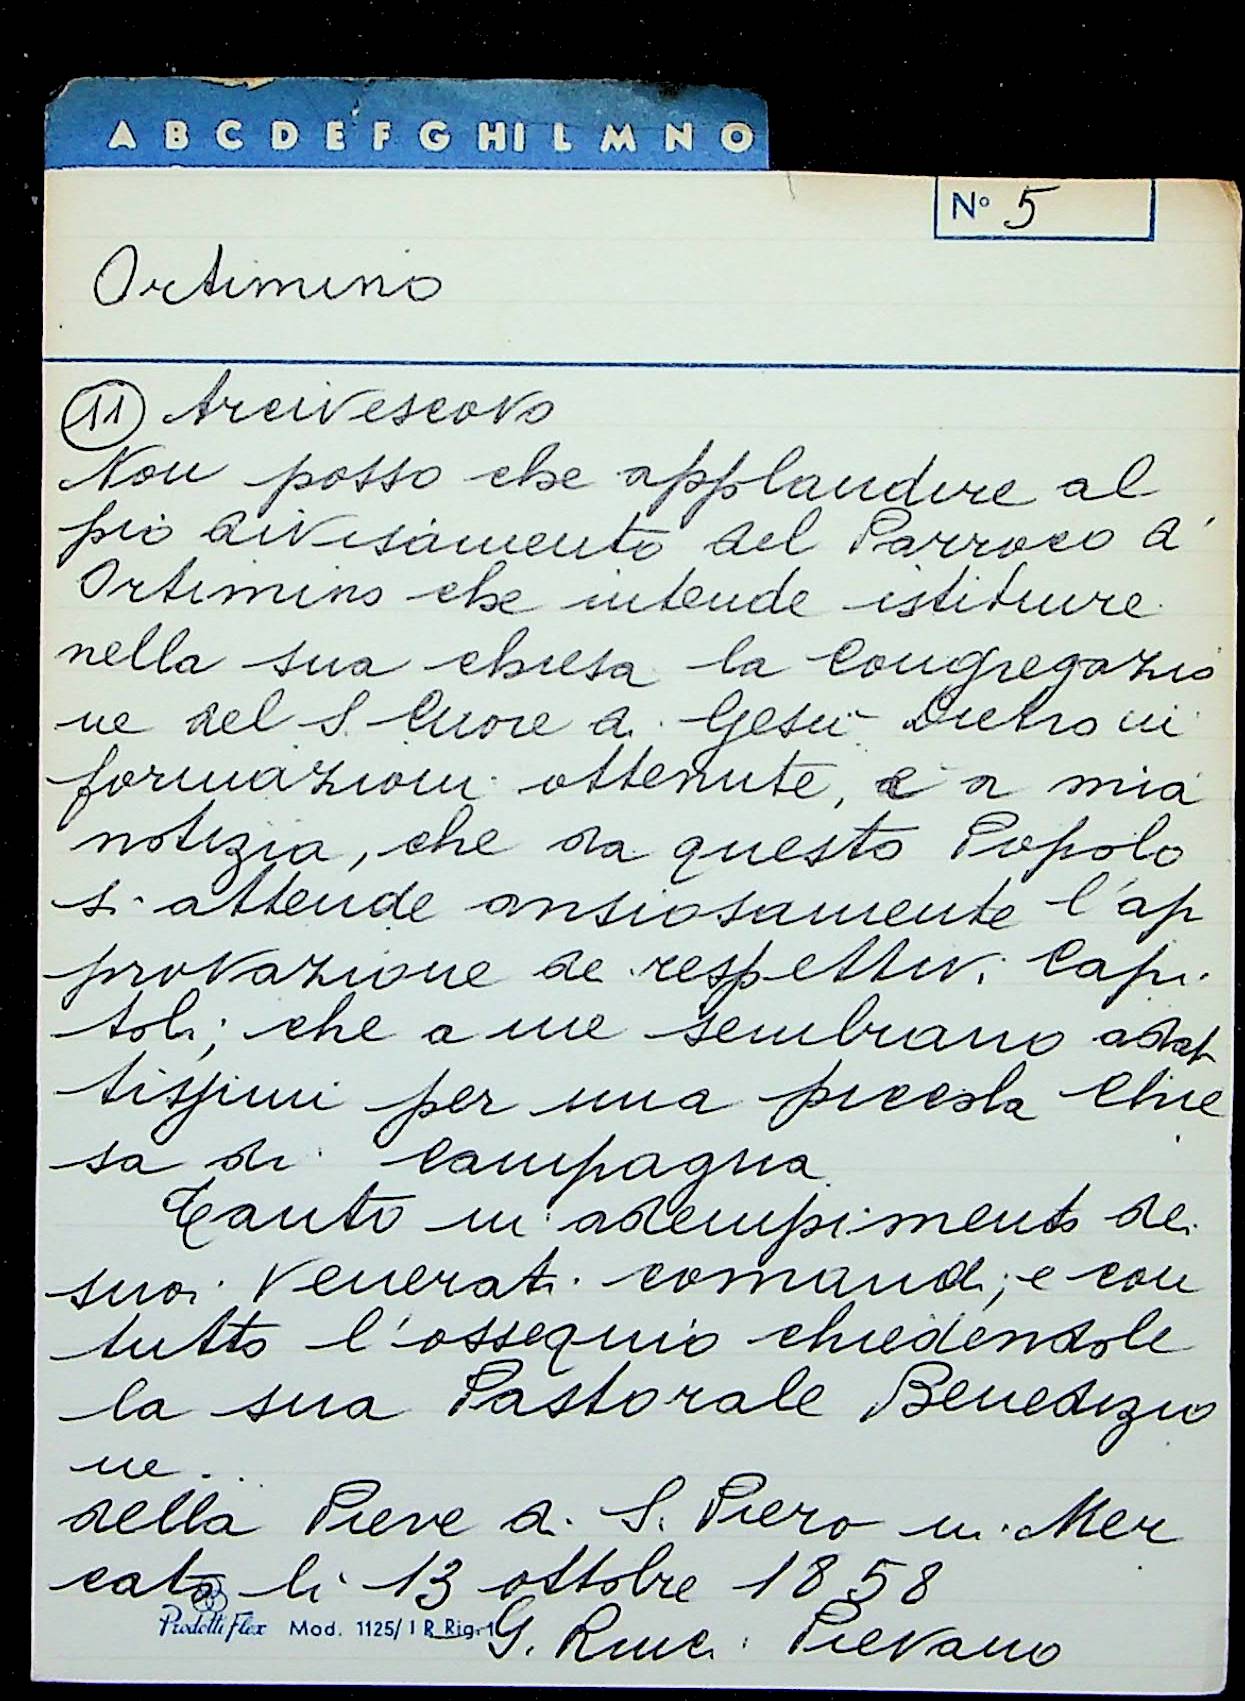 A B C D E F G HI L M N O
N° 5
Ortimino
11 Arcivescovo
Non posso che applaudire al
pio divisamento del Parroco d'
Ortimino che intende istituire
nella sua chiesa la Congregazio
ne del S. Cuore di Gesù Dietro in
formazioni ottenute, è a mia
notizia, che da questo Popolo
si attende ansiosamente l'ap
provazione de respettivi Capi
toli; che a me sembrano adat
tissimi per una piccola Chie
sa di Campagna.
Tanto in adempimento dei
suoi venerati comandi; e con
tutto l'ossequio chiedendole
la sua Pastorale Benedizio
ne.
della Pieve di S. Piero in Mer
cato li 13 ottobre 1858
Prodotti Flex Mod. 1125/1 R Rig. 1
G. Pievano